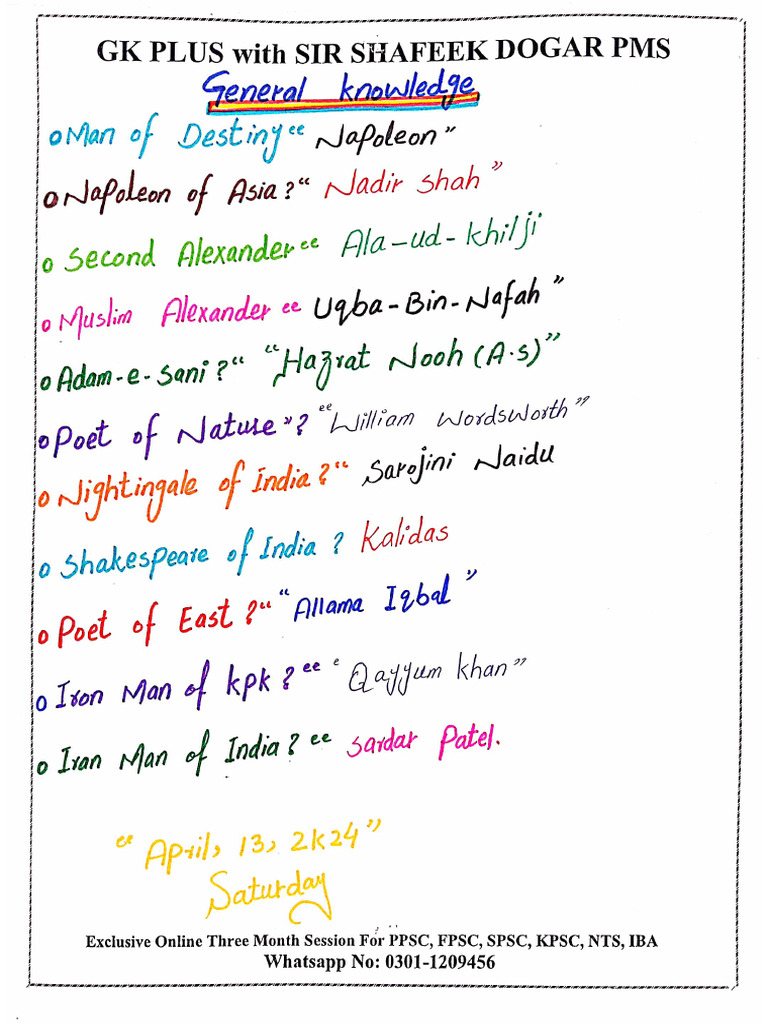 GK PLUS with SIR SHAFEEK DOGAR PMS
General knowledge
o Man of Destiny “ Napoleon”
o Napoleon of Asia? “ Nadir Shah”
o Second Alexander “ Ala-ud-khilji
o Muslim Alexander “ Uqba-Bin-Nafah”
o Adam-e-Sani? “ “Hazrat Nooh (A.s)”
o Poet of Nature”? “William Wordsworth”
o Nightingale of India? “ Sarojini Naidu
o Shakespeare of India ? Kalidas
o Poet of East? “ “Allama Iqbal”
o Iron Man of kpk? “ ‘Qayyum khan”
o Iran Man of India? “ Sardar Patel.
“April, 13, 2k24”
Saturday
Exclusive Online Three Month Session For PPSC, FPSC, SPSC, KPSC, NTS, IBA
Whatsapp No: 0301-1209456